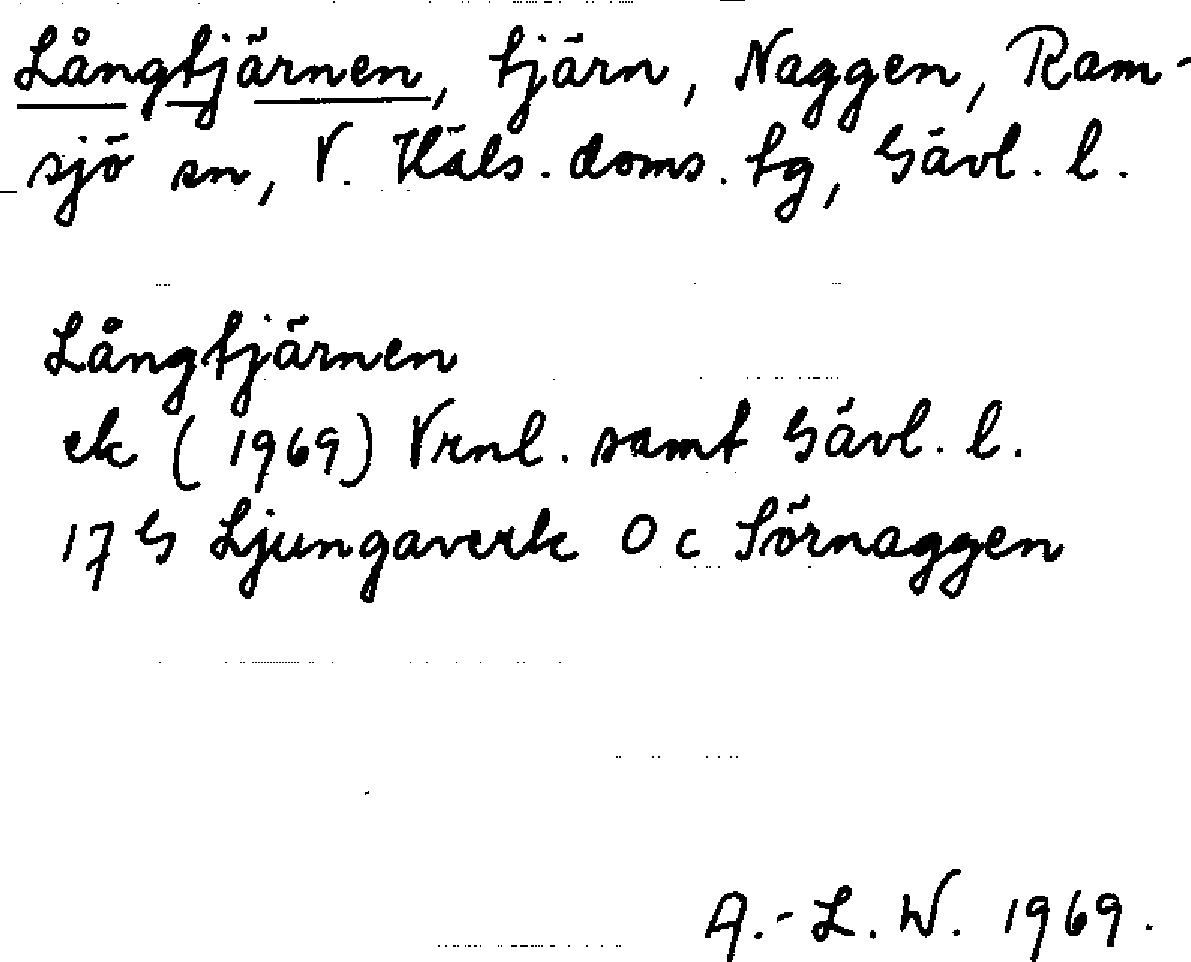 Långtjärnen, tjärn, Naggen, Ram-
sjö sn, V. Häls. doms. tg, Gävl. l.
Långtjärnen
ek (1969) Vrnl. samt Gävl. l.
17 G Ljungaverk 0 c Sörnaggen
A.-L. W. 1969.